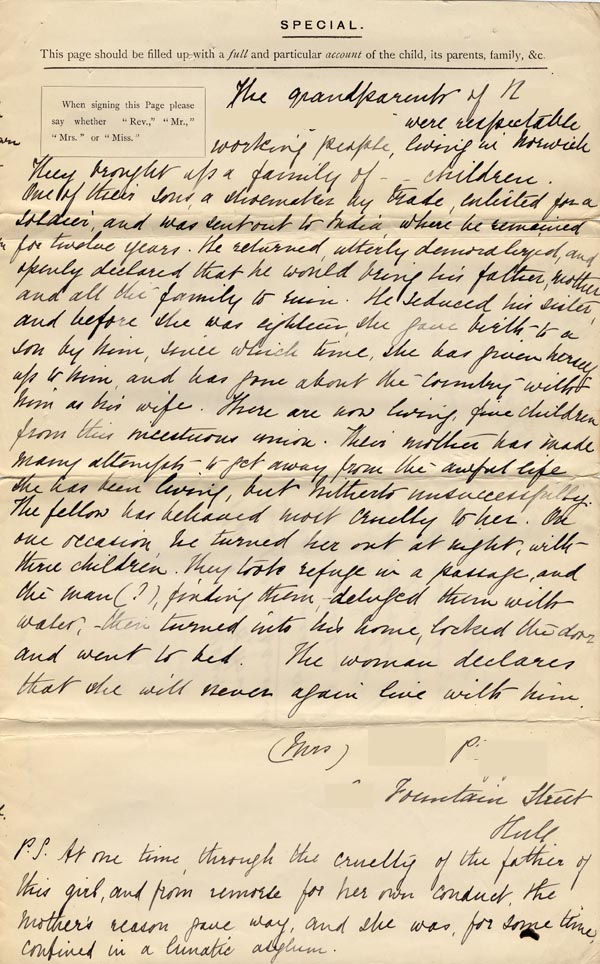 SPECIAL.
This page should be filled up with a full and particular account of the child, its parents, family, &c.
When signing this Page please
say whether "Rev.," "Mr.,"
"Mrs." or "Miss."
The grandparents of N
were respectable
working people, living in Norwich
They brought up a family of - - children.
One of their sons, a shoemaker by trade, enlisted for a
soldier, and was sent out to India, where he remained
for twelve years. He returned, utterly demoralized, and
openly declared that he would bring his father, mother
and all the family to ruin. He seduced his sister,
and before she was eighteen, she gave birth to a
son by him, since which time, she has given herself
up to him, and has gone about the country with
him as his wife. There are now living, five children
from this incestuous union. Their mother has made
many attempts to get away from the awful life
she has been living, but hitherto unsuccessfully.
The fellow has behaved most cruelly to her. On
one occasion he turned her out at night, with
three children. They took refuge in a passage, and
the man (?), finding them, deluged them with
water, - then turned into his home, locked the door
and went to bed. The woman declares
that she will never again live with him.
(Mrs) P.
Fountain Street
Hull
P.S. At one time, through the cruelty of the father of
this girl, and from remorse for her own conduct, the
mother's reason gave way, and she was, for some time,
confined in a lunatic asylum.